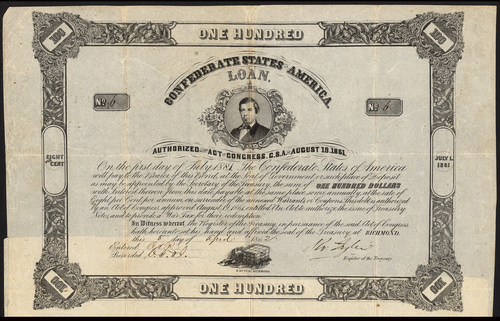 100 ONE HUNDRED 100
CONFEDERATE STATES AMERICA
LOAN.
No 6 No 6
AUTHORIZED ACT OF CONGRESS, C.S.A. OF AUGUST 19, 1861.
EIGHT PER CENT
JULY 1. 1881
On the first day of July 1881, The Confederate States of America
will pay to the Bearer of this Bond, at the seat of Government, or such place of Deposit
as may be appointed by the Secretary of the Treasury, the sum of ONE HUNDRED DOLLARS
with Interest thereon from this date, payable at the same place, semi-annually, at the rate of
Eight per Cent per annum, on surrender of the annexed Warrants or Coupons. This debt is authorized
by an Act of Congress approved August 19, 1861, entitled An Act to authorize the issue of Treasury
Notes, and to provide a War Tax for their redemption.
In Witness whereof, the Register of the Treasury, in pursuance of the said Act of Congress
hath hereunto set his hand and affixed the seal of the Treasury, at RICHMOND,
this day of April 1862
Entered
Recorded
Ro Tyler
Register of the Treasury
100 ONE HUNDRED 100